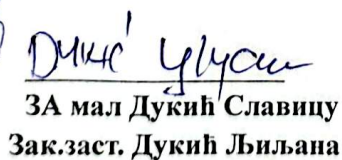 Дукић
ЗА мал Дукић Славицу
Зак.заст. Дукић Љиљана